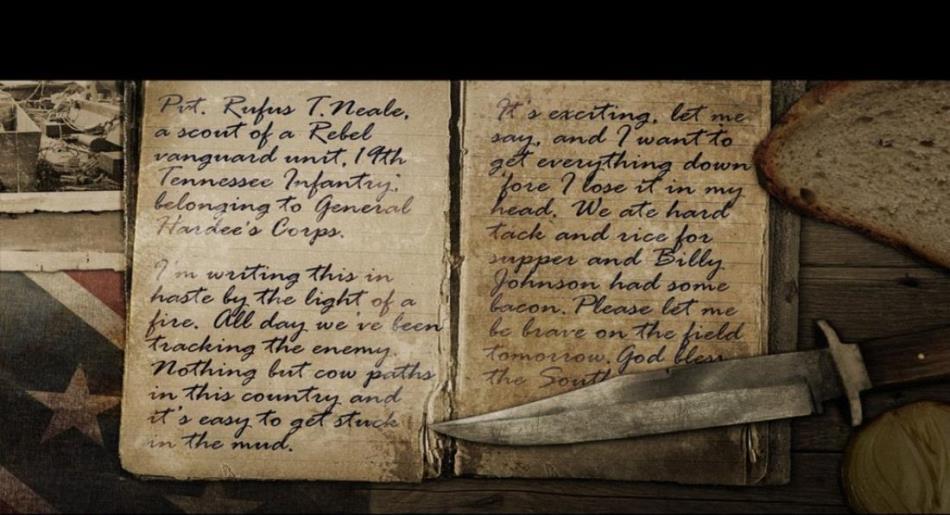 Pvt. Rufus T. Neale,
a scout of a Rebel
vanguard unit, 19th
Tennessee Infantry,
belonging to General
Hardee's Corps.
I'm writing this in
haste by the light of a
fire. All day we've been
tracking the enemy.
Nothing but cow paths
in this country and
it's easy to get stuck
in the mud.
It's exciting, let me
say, and I want to
get everything down
'fore I lose it in my
head. We ate hard
tack and rice for
supper and Billy
Johnson had some
bacon. Please let me
be brave on the field
tomorrow. God bless
the South